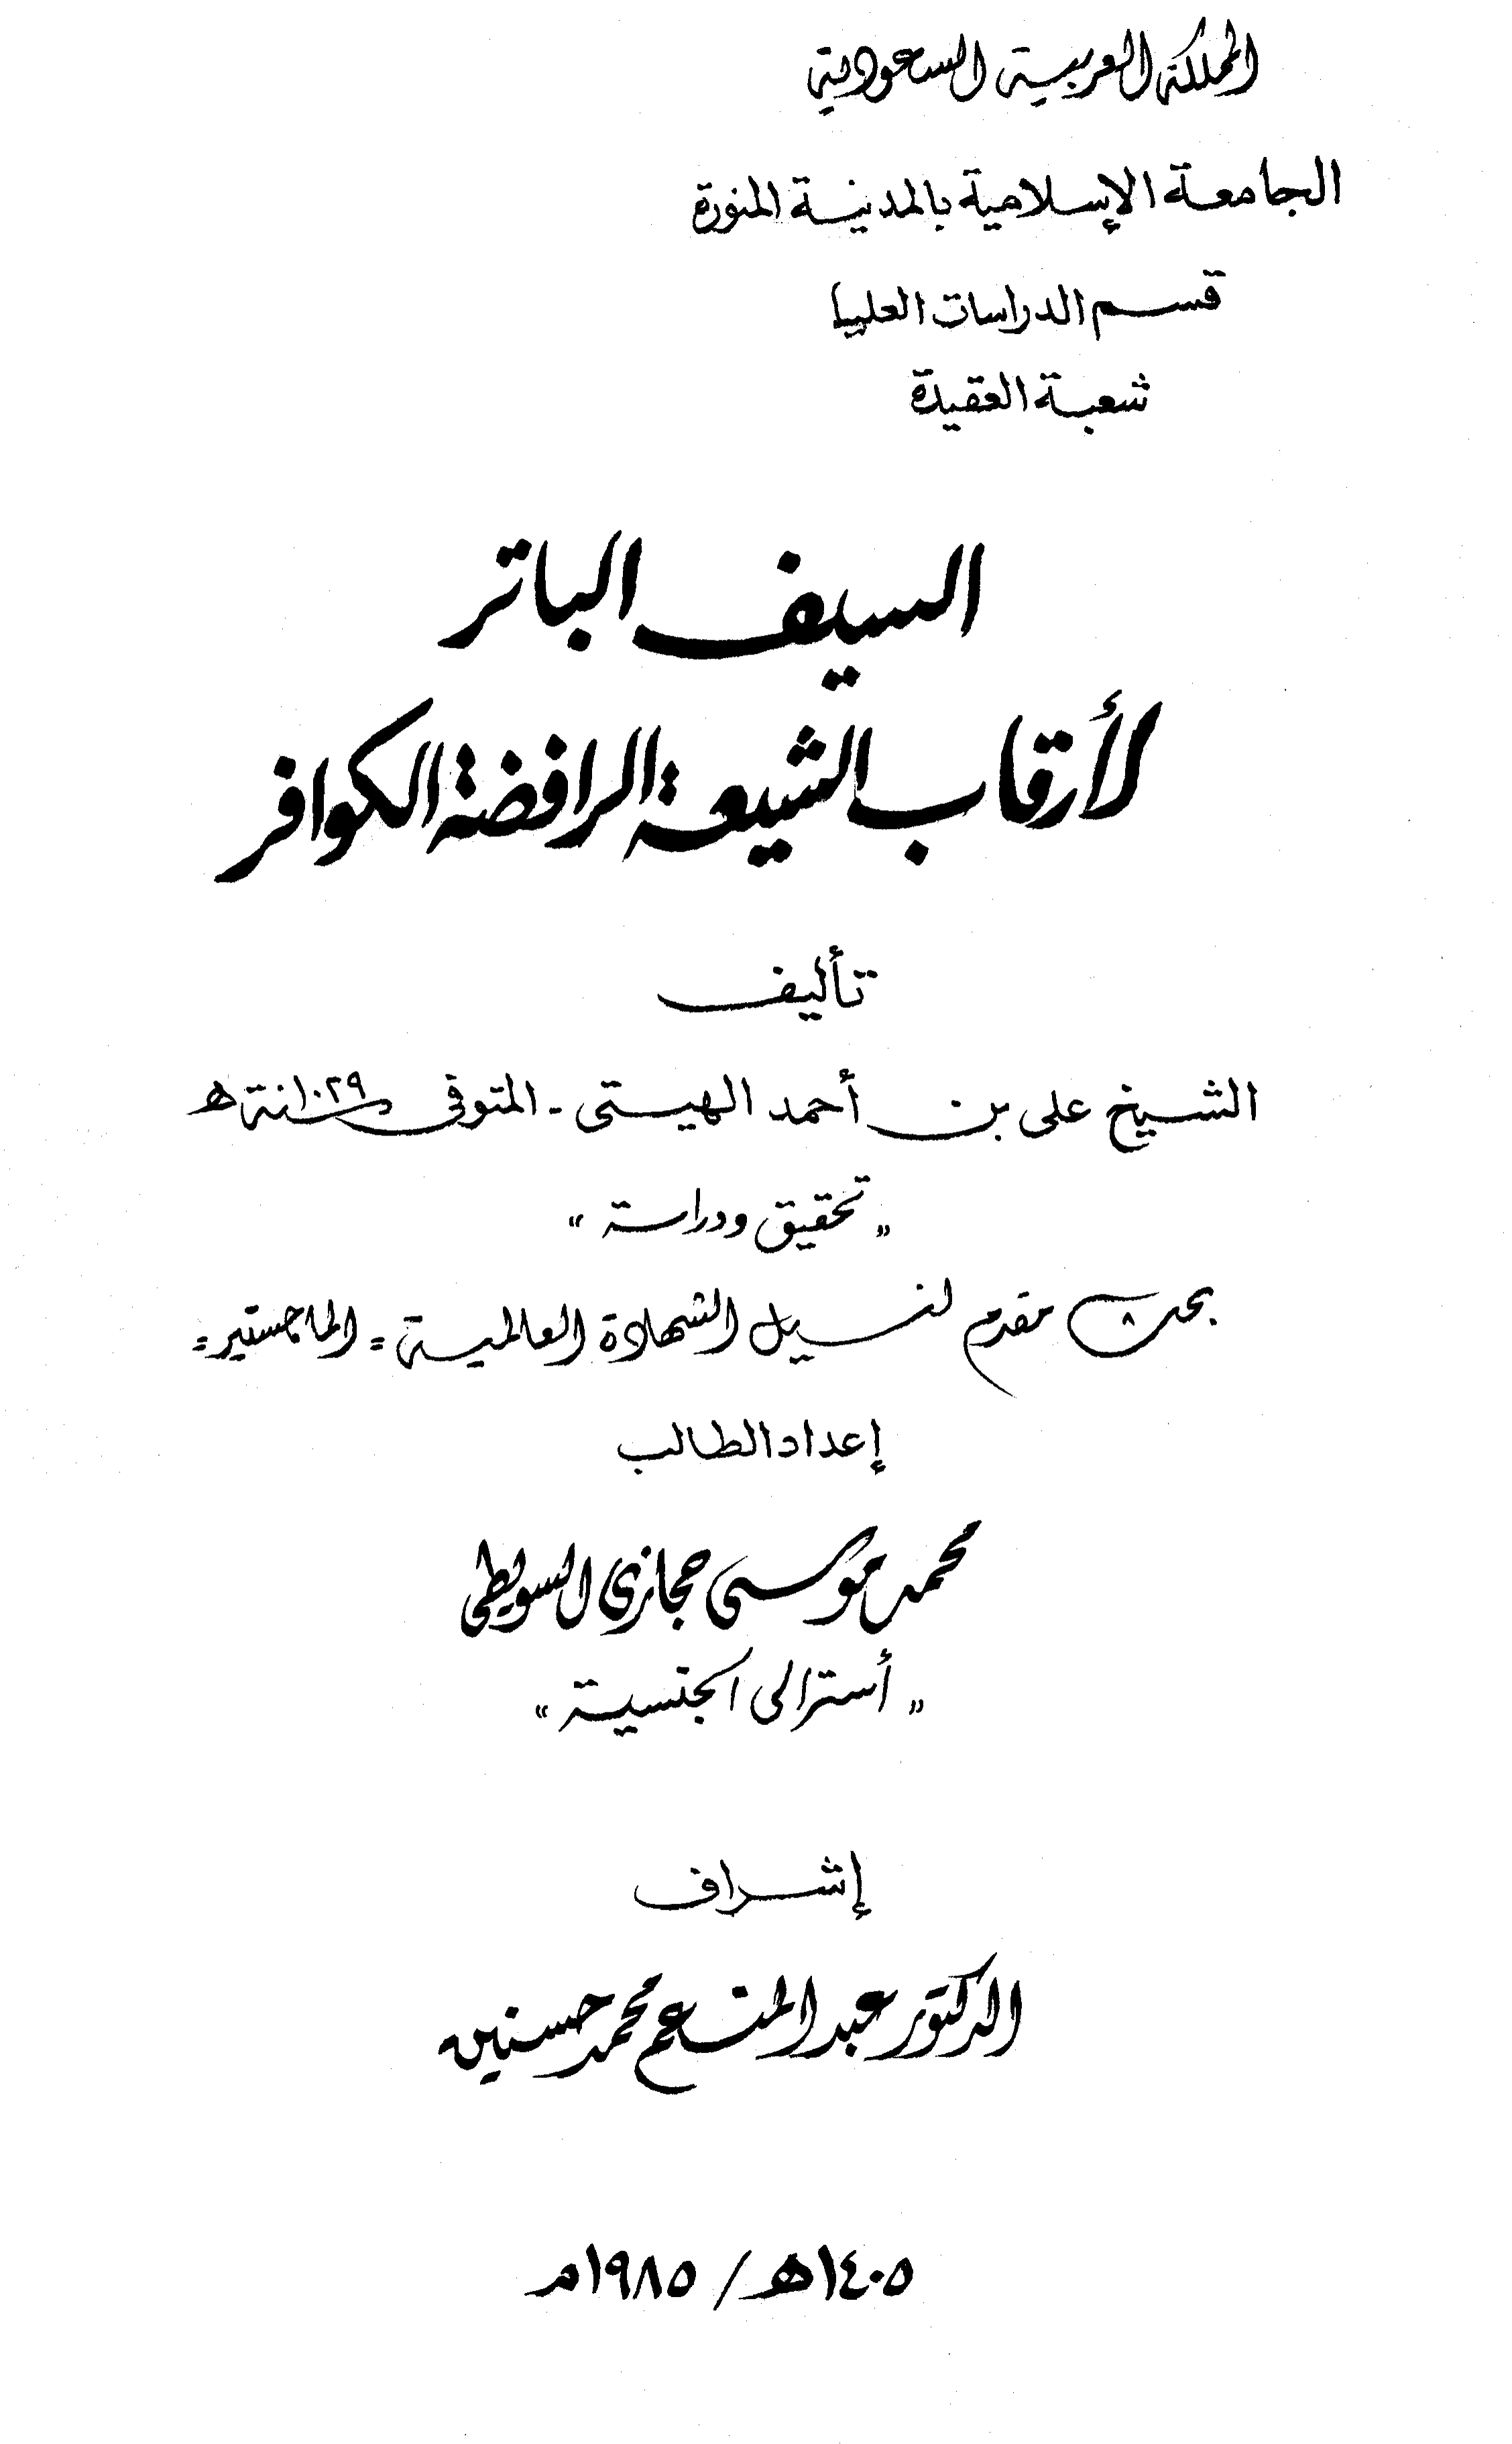 المملكة العربية السعودية
الجامعة الإسلامية بالمدينة المنورة
قسم الدراسات العليا
شعبة العقيدة
السيف الباتر
لأرقاب الشيعة الرافضة الكوافر
تأليف
الشيخ على بن أحمد الهيستى - المتوفى سنة ١٠٢٩ هـ
"تحقيق ودراسة"
بحث مقدم لنيل الشهادة العالمية = الماجستير =
إعداد الطالب
محمد موسى حجازى السويطى
"أسترالى الجنسية"
إشراف
الدكتور عبد المنعم محمد حسنين
١٤٠٥هـ / ١٩٨٥م